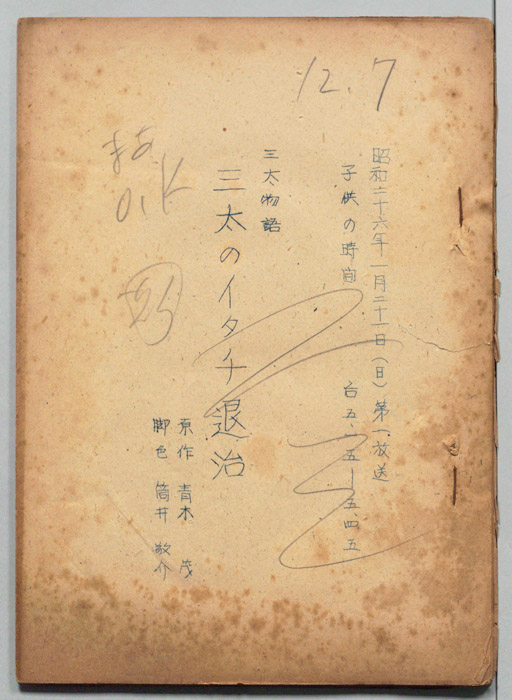 12.7
昭和二十六年一月二十一日(日)第一放送
子供の時間
五、一五―五、四五
三太物語
三太のイタチ退治
原作 青木 茂
脚色 筒井 敬介
O.K